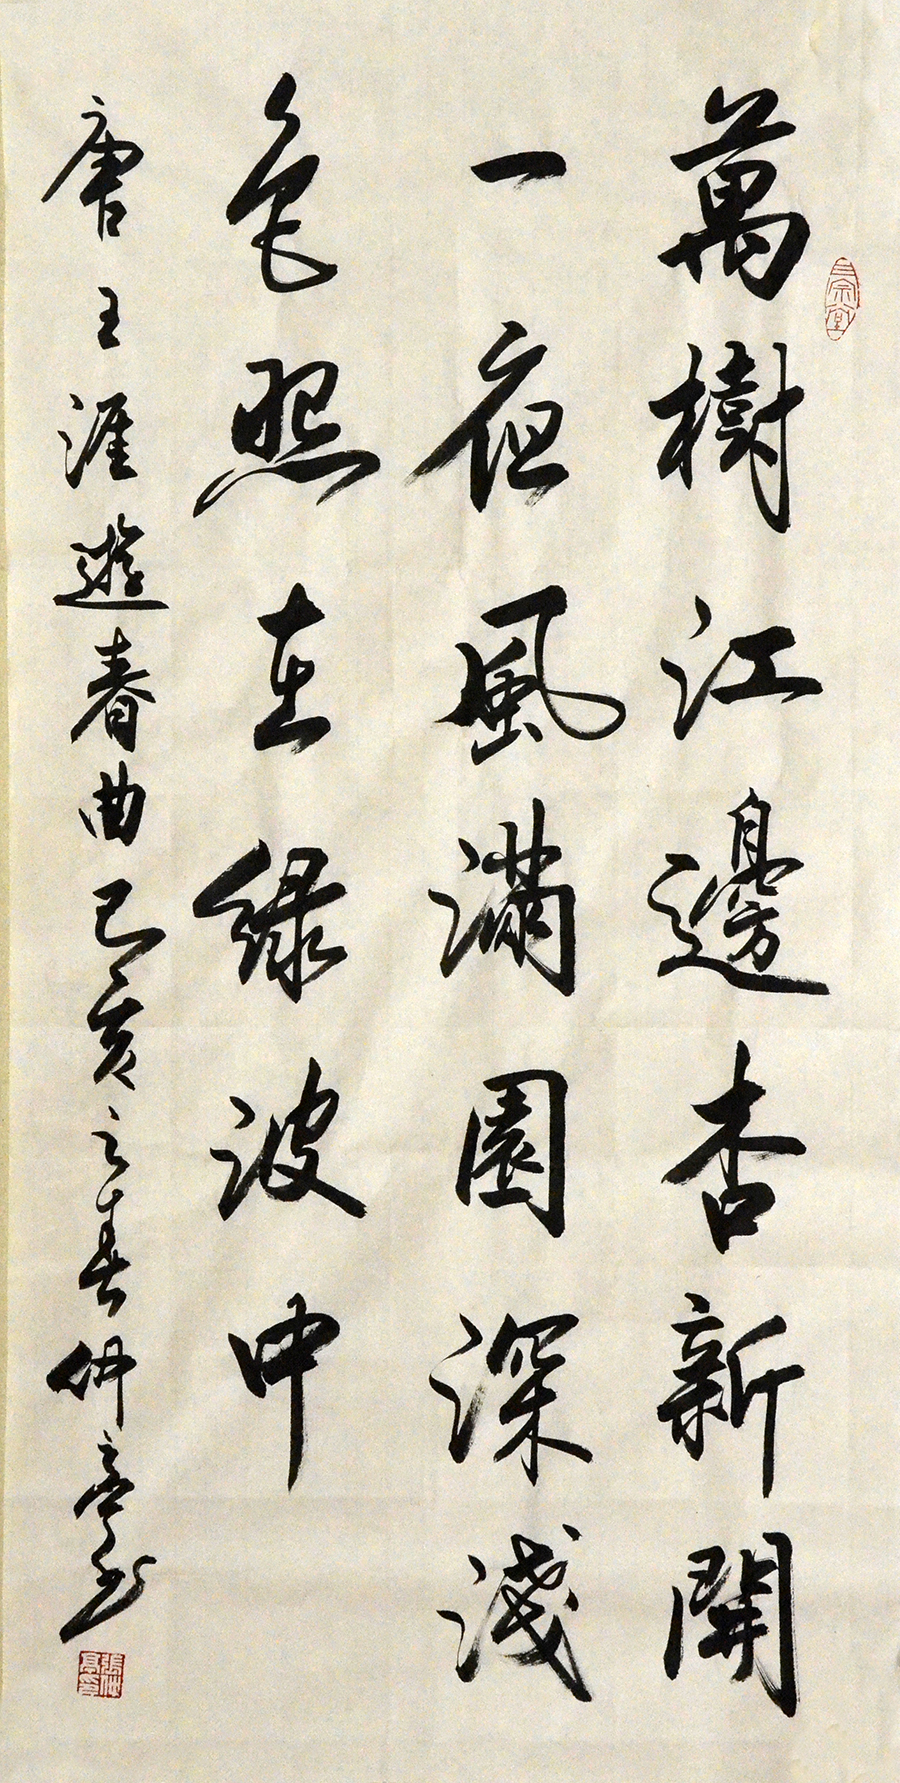 三宗堂
萬樹江邊杏新開
一夜風滿園深淺
色照在綠波中
唐王涯遊春曲己亥之春仲亭书